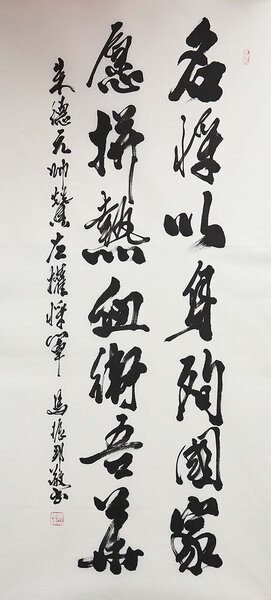 名將以身殉國家
愿拼熱血衛吾華
朱德元帅贊左權將軍 馬振邦敬书